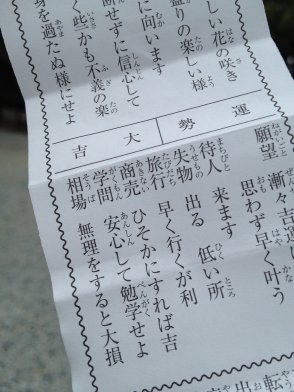 しい花の咲き
盛りの楽しい様
に向います
断せずに信心して
く些かも不義の楽
身を過たぬ様にせよ
運勢
大吉
願望 思わず早く叶う
待人 来ます
失物 出る 低い所
旅行 早く行くが利
商売 ひそかにすれば吉
学問 安心して勉学せよ
相場 無理をすると大損
転
出